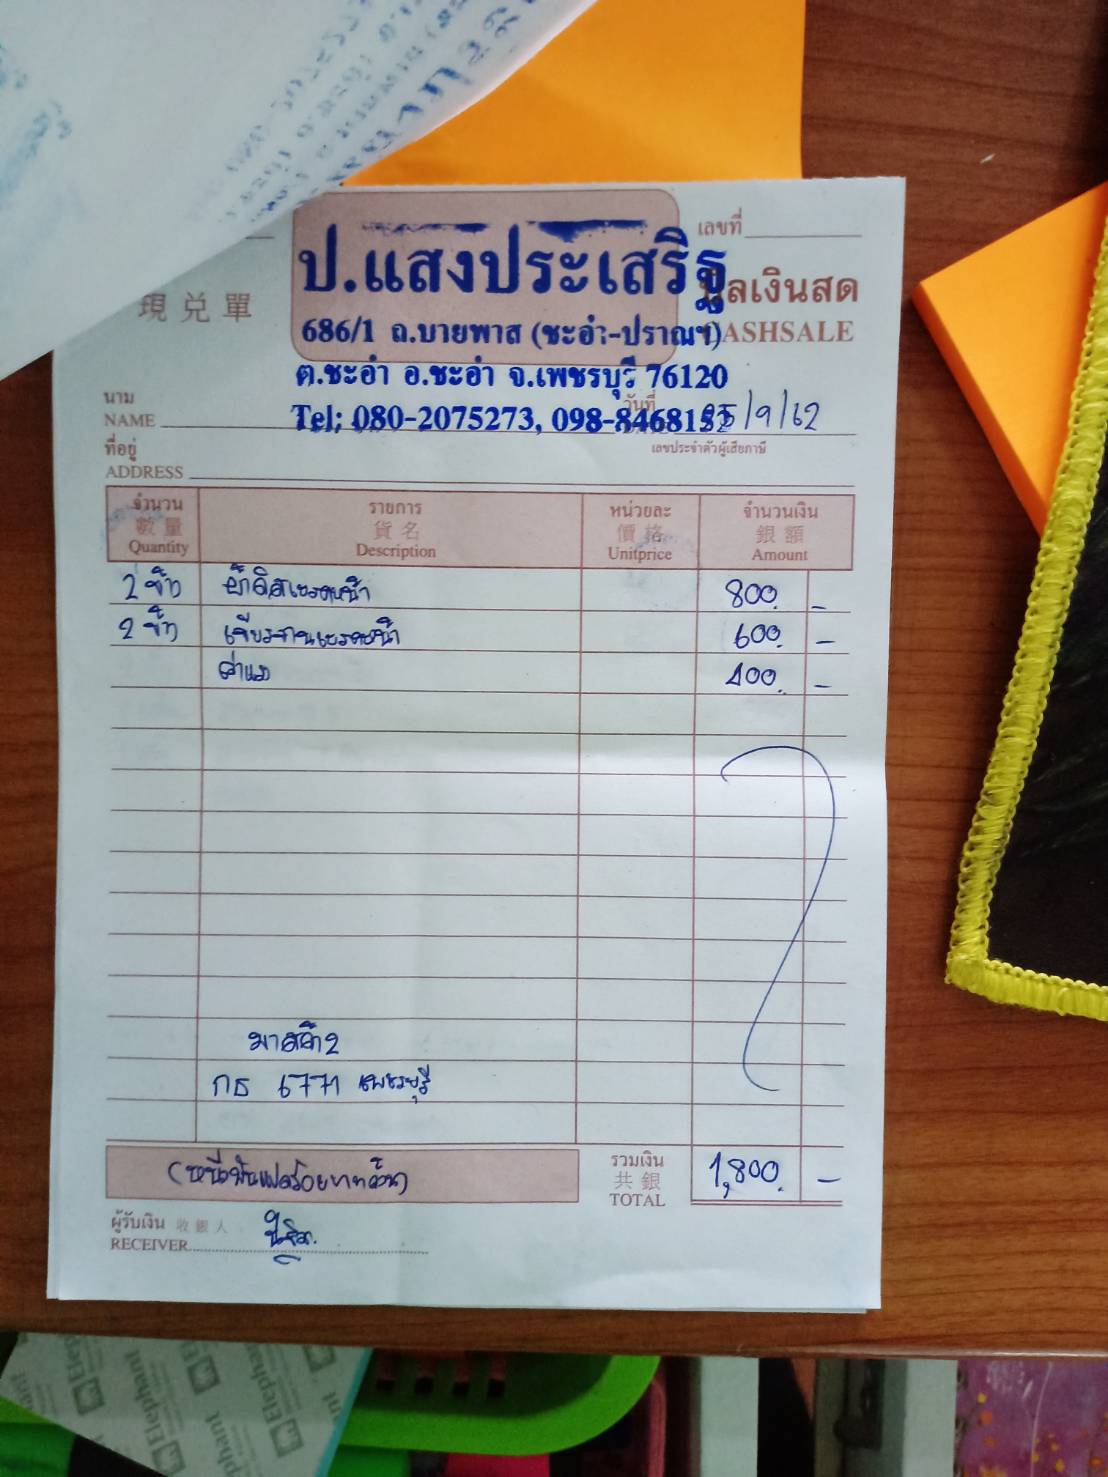 เลขที่
ป.แสงประเสริฐ
現兑單
บิลเงินสด
CASHSALE
686/1 ถ.บายพาส (ชะอำ-ปราณฯ)
ต.ชะอำ อ.ชะอำ จ.เพชรบุรี 76120
นาม
NAME
Tel; 080-2075273, 098-8468152
วันที่
25/9/62
ที่อยู่
ADDRESS
เลขประจำตัวผู้เสียภาษี
จำนวน รายการ หน่วยละ จำนวนเงิน
數量 貨名 價格 銀額
Quantity Description Unitprice Amount
2 ข้าง ผ้าดิสเบรคหน้า 800.-
2 ข้าง เจียรจานเบรคหน้า 600.-
ค่าแรง 400.-
มาสด้า2
กธ 6771 เพชรบุรี
(หนึ่งพันแปดร้อยบาทถ้วน)
รวมเงิน
共銀
TOTAL
1,800.-
ผู้รับเงิน 收銀人
RECEIVER
Elephant
Elephant
Elephant